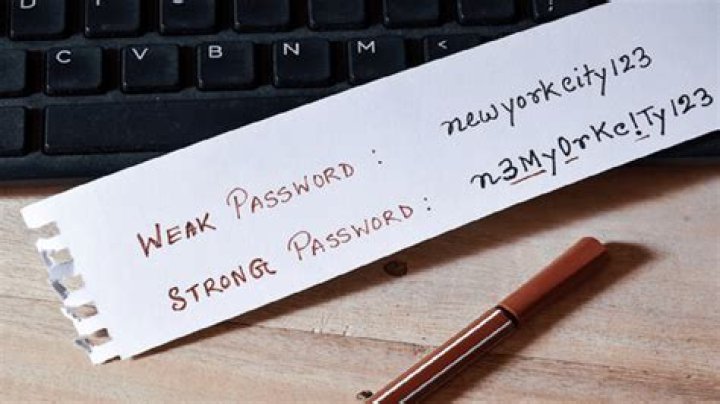 D
C V B N M <
WEAK PASSWORD : newyorkcity123
STRONG PASSWORD : n3MyOrKc!Ty123